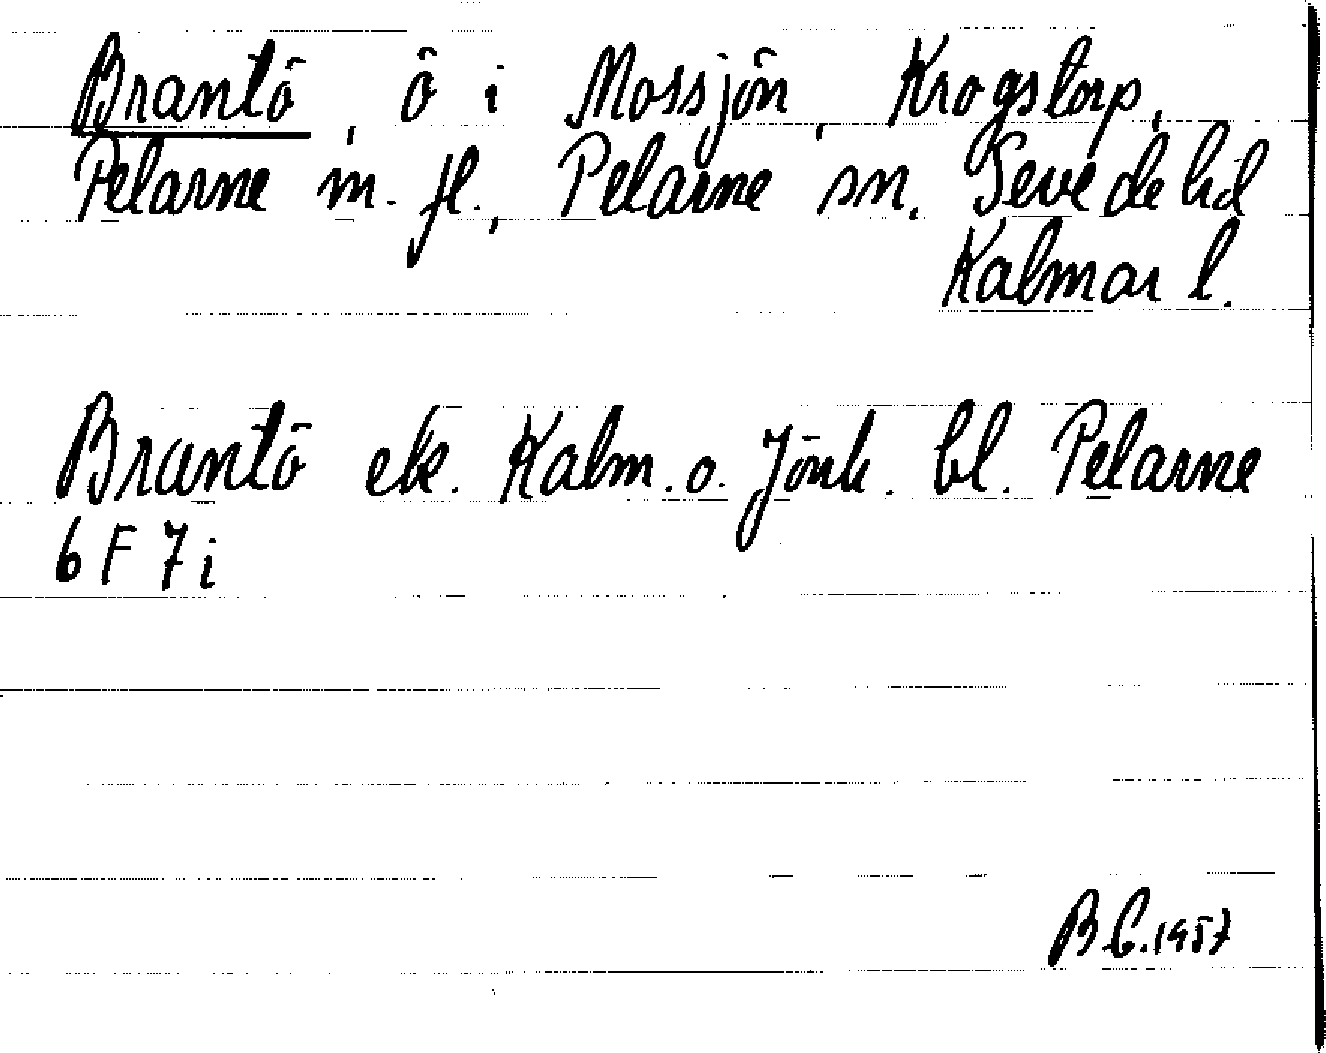 Brantö, ö i Mossjön, Krogstorp,
Pelarne m. fl., Pelarne sn. Sevede hd
Kalmar l.
Brantö ek. Kalm. o. Jönk. bl. Pelarne
6 F 7 i
B.C. 1957